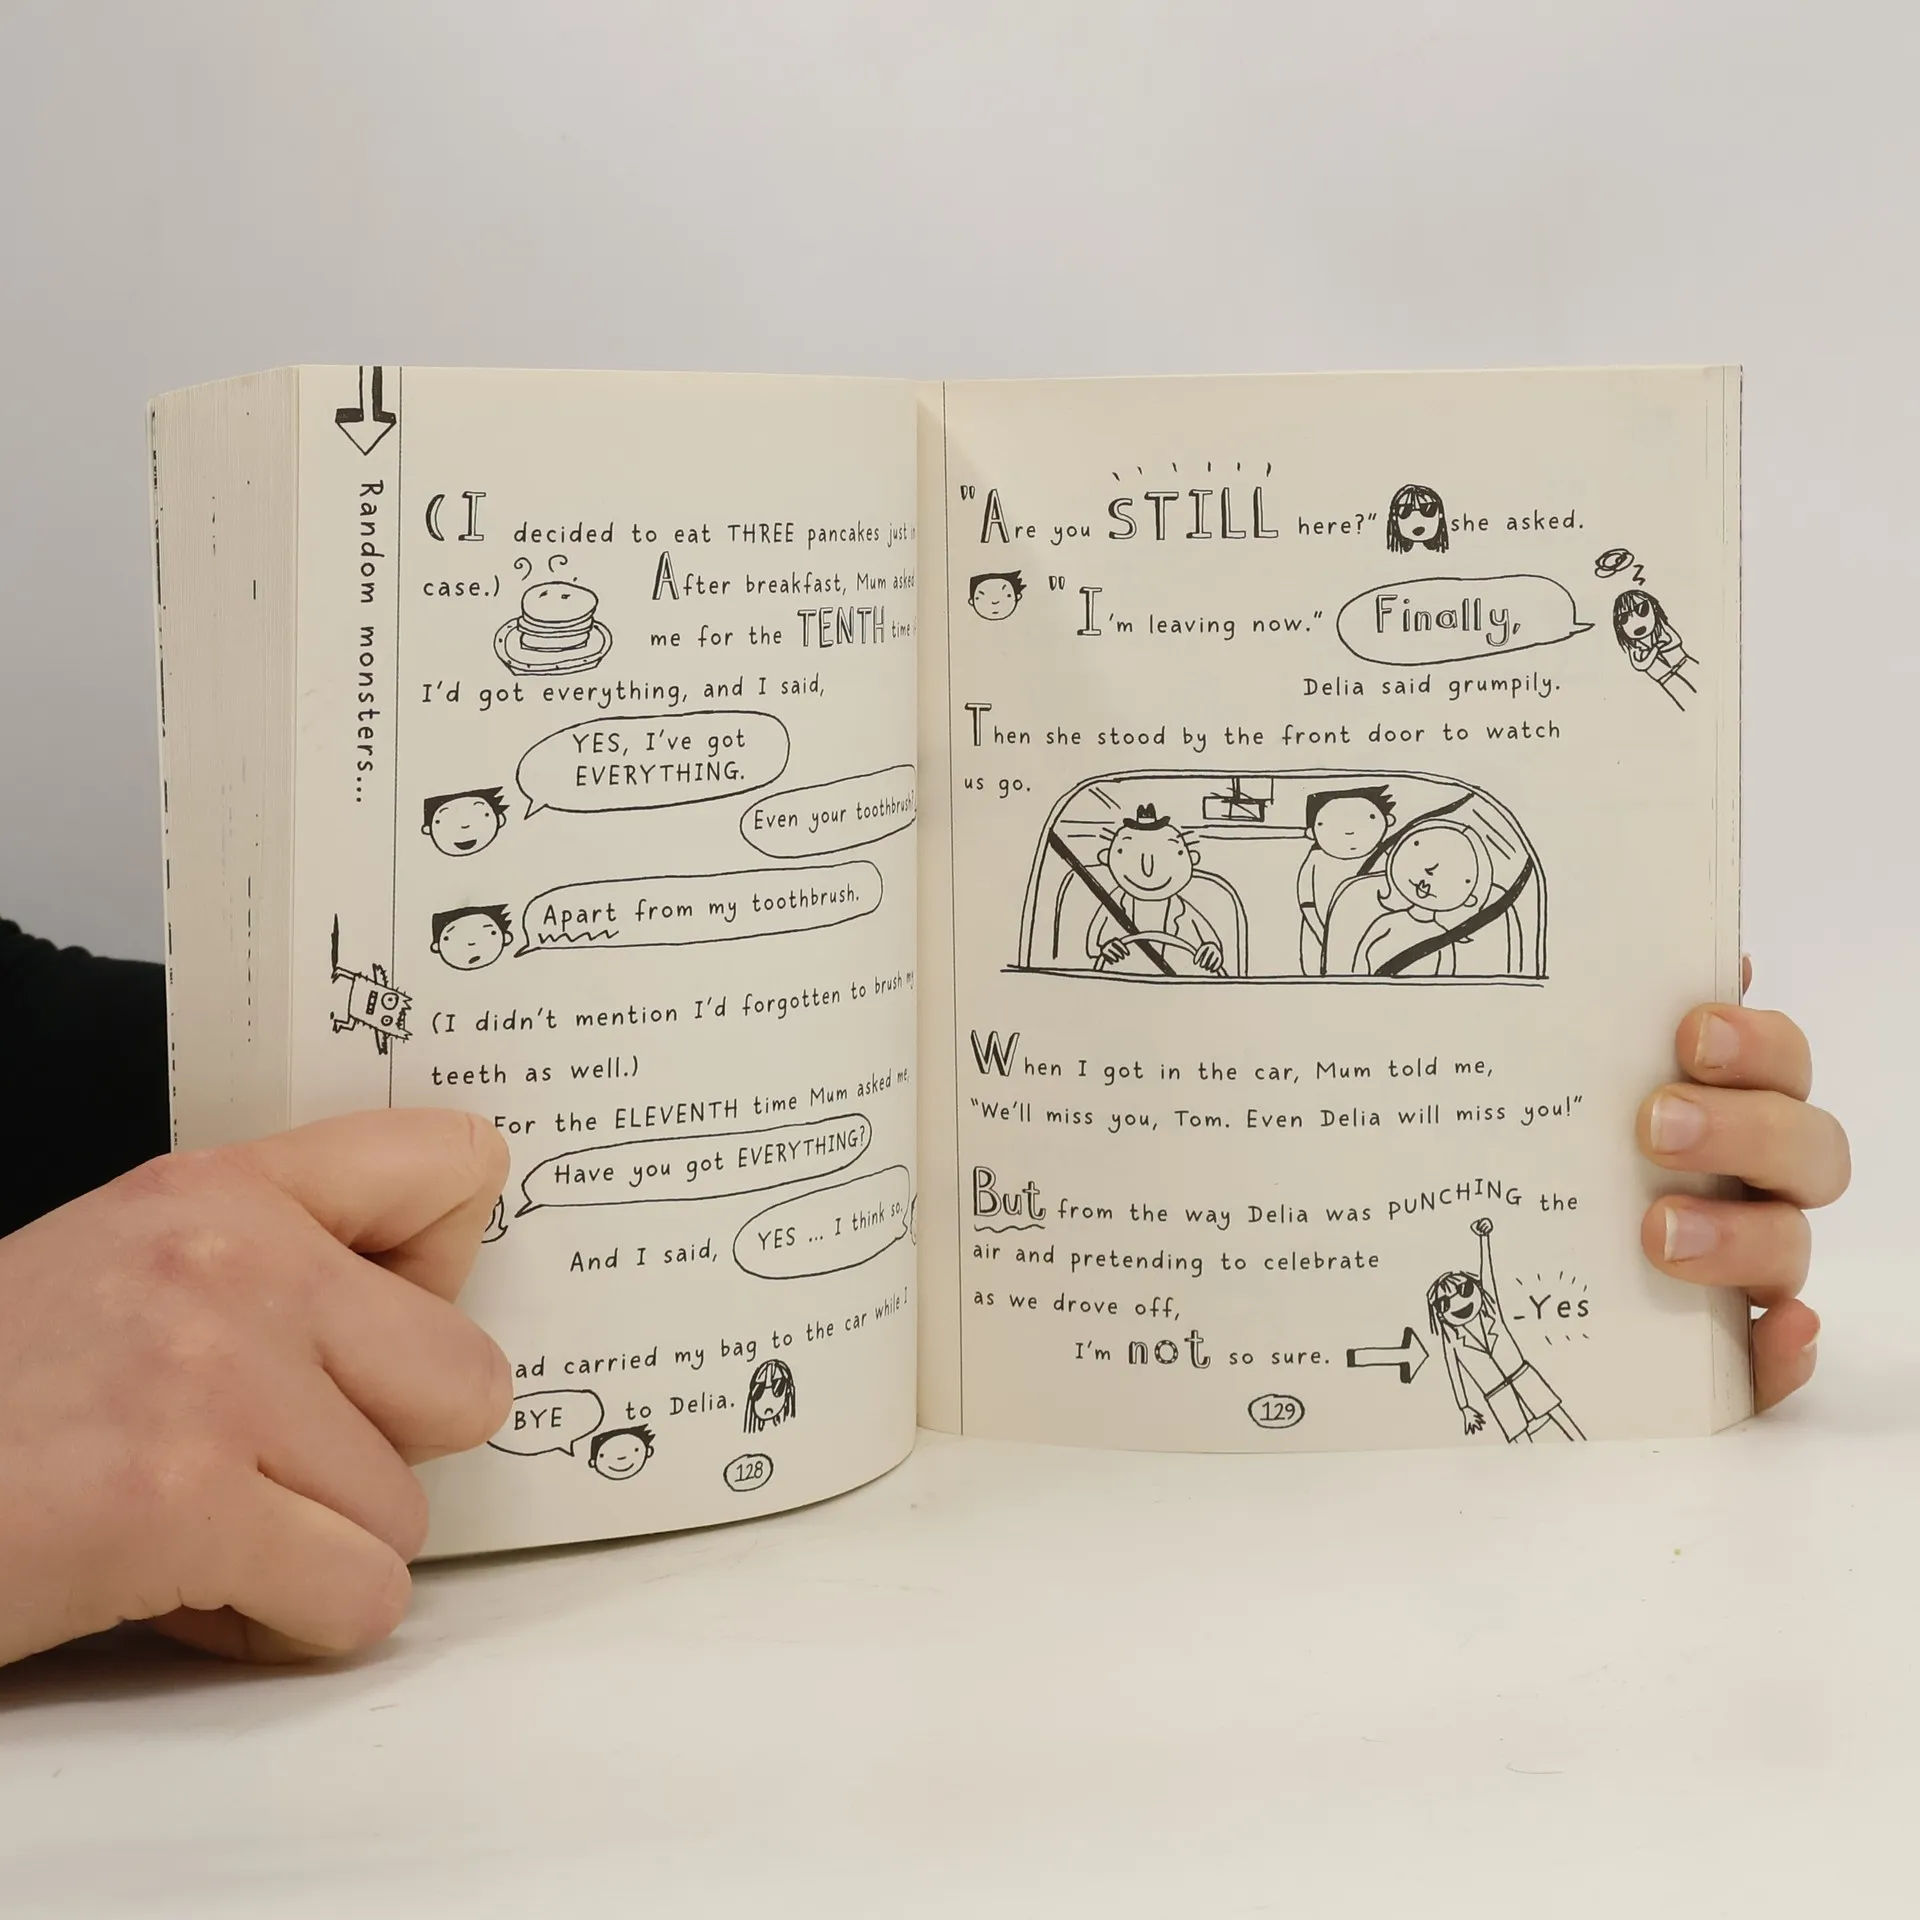 Random monsters...
(I decided to eat THREE pancakes just in
case.)
After breakfast, Mum asked
me for the TENTH time
I'd got everything, and I said,
YES, I've got
EVERYTHING.
Even your toothbrush?
Apart from my toothbrush.
(I didn't mention I'd forgotten to brush my
teeth as well.)
For the ELEVENTH time Mum asked me,
Have you got EVERYTHING?
And I said, YES ... I think so.
ad carried my bag to the car while I
BYE to Delia.
128
"Are you STILL here?" she asked.
"I'm leaving now." Finally,
Delia said grumpily.
Then she stood by the front door to watch
us go.
When I got in the car, Mum told me,
"We'll miss you, Tom. Even Delia will miss you!"
But from the way Delia was PUNCHING the
air and pretending to celebrate
as we drove off,
Yes
I'm not so sure.
129